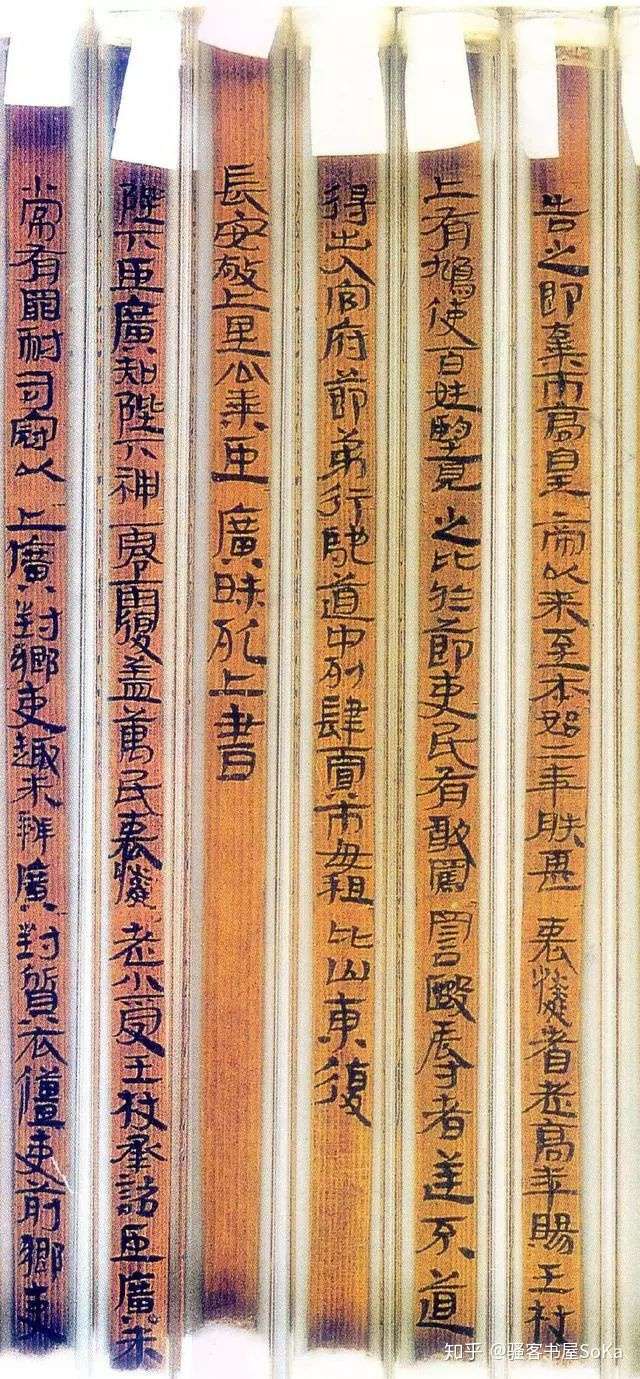 告之即棄市高皇帝以來至本始二年朕甚哀憐耆老高年賜王杖
上有鳩使百姓望見之比於節吏民有敢罵詈毆辱者逆不道
得出入官府節弟行馳道中列肆賈市毋租比山東復
長安敬上里公乘臣廣昧死上書
陛下臣廣知陛下神零覆蓋萬民哀憐老小受王杖承詔臣廣未
常有罪耐司寇以上廣對鄉吏趣未辨廣對質衣僵吏前鄉吏
知乎 @骚客书屋SoKa